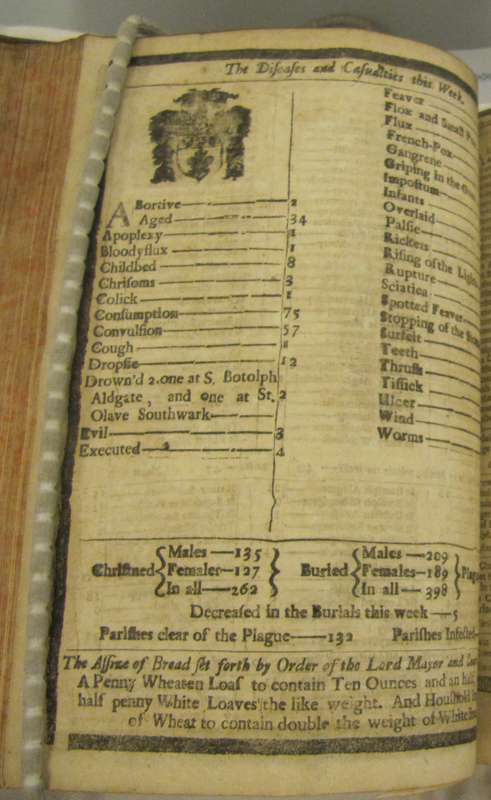 The Diſeaſes and Caſualties this Week.
ABortive 2
Aged 34
Apoplexy 1
Bloodyflux 1
Childbed 8
Chriſoms 3
Colick 1
Conſumption 75
Convulſion 57
Cough
Dropſie 12
Drown'd 2. one at S. Botolph
Aldgate, and one at St. 2
Olave Southwark
Evil 3
Executed 4
Feaver
Flox and Small
Flux
French-Pox
Gangrene
Griping in the
Impoſtum
Infants
Overlaid
Palſie
Rickets
Riſing of the Lights
Rupture
Sciatica
Spotted Feaver
Stopping of the
Surfeit
Teeth
Thruſh
Tiſſick
Ulcer
Wind
Worms
Chriſtned { Males—135 Females—127 In all—262 }
Buried { Males—209 Females—189 In all—398 }
Decreaſed in the Burials this week—5
Pariſhes clear of the Plague—132 Pariſhes Infected
The Aſſize of Bread ſet forth by Order of the Lord Mayor and
A Penny Wheaten Loaf to contain Ten Ounces and an half,
half penny White Loaves the like weight. And Houſhold
of Wheat to contain double the weight of White